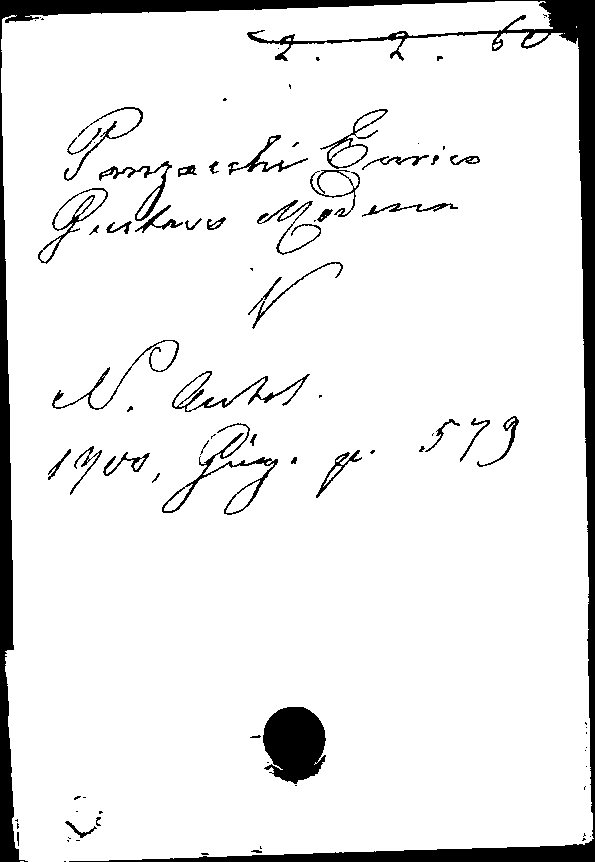 2. 2. 60
Panzacchi Enrico
Gustavo Modena
N
N. Antol.
1900, Giug. p. 579